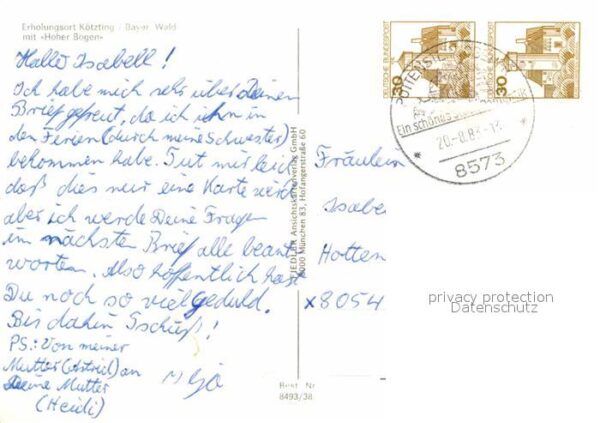 Erholungsort Kötzting · Bayer. Wald
mit «Hoher Bogen»
Hallo Isabell!
Ich habe mich sehr über Deinen
Brief gefreut, da ich ihn in
den Ferien (durch meine Schwester)
bekommen habe. Tut mir leid
daß dies nur eine Karte werde
aber ich werde Deine Fragen
im nächsten Brief alle beant
worten. Also hoffentlich hast
Du noch so viel geduld.
Bis dahin Tschüß!
PS.: Von meiner
Mutter (Astrid) an
Deine Mutter
(Heidi)
FIEDLER Ansichtskartenverlag GmbH
8000 München 83, Hofangerstraße 60
Best. Nr.
8493/38
DEUTSCHE BUNDESPOST
30
DEUTSCHE BUNDESPOST
30
Ein schönes
20.-8.83-13
8573
Fräulein
Isabe
Hotten
x8054
privacy protection
Datenschutz